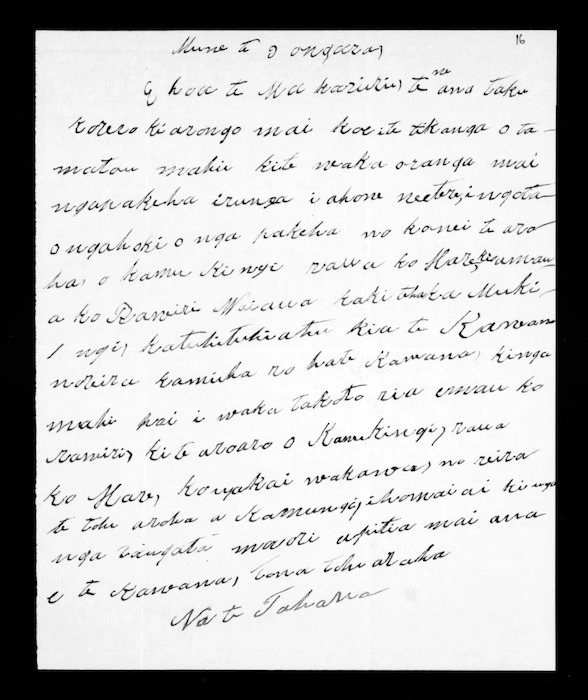 16
Mune te 9 ongara,
E hoa te Ma karini, te na ana taku
korero kiarongo mai koe ite tikanga o ta-
matou mahi kite waka oranga mai
ngapakeha irunga i ahone
ongahoki o nga pakeha no konei te aro
ha, o kamu Kingi raua ko Hare,
a ko Rawiri Waiaua kaki
ngi, katuhituhiatu kia te Kawan
noreira ro hate Kawana, kinga
mahi pai i waka takoto ria ko
rawiri, ki te aroaro o Kamukingi, raua
ko Hare, kowakawa, no reira
te tohu aroha a Kamungi, ihomai ai ki nga
nga tangata maori apitia mai ana
e te Kawana, tona tohu aroha
Na te Tahana